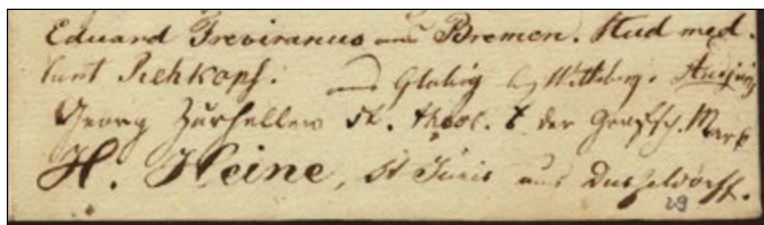 Eduard Treviranus aus Bremen. Stud med.
Rehkopf. aus b. Wittenberg.
Georg Zurhellen St. theol. der Grafsch. Mark
H. Heine, St Juris aus Dusseldorff.
29